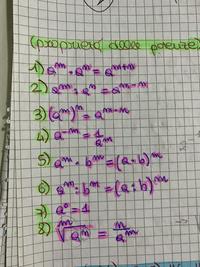 (proprietà delle potenze)
1) aᵐ · aⁿ = aᵐ⁺ⁿ
2) aᵐ : aⁿ = aᵐ⁻ⁿ
3) (aᵐ)ⁿ = aᵐ·ⁿ
4) a⁻ᵐ = 1/aᵐ
5) aᵐ · bᵐ = (a · b)ᵐ
6) aᵐ : bᵐ = (a : b)ᵐ
7) a⁰ = 1
8) ᵐ√aⁿ = n/aᵐ